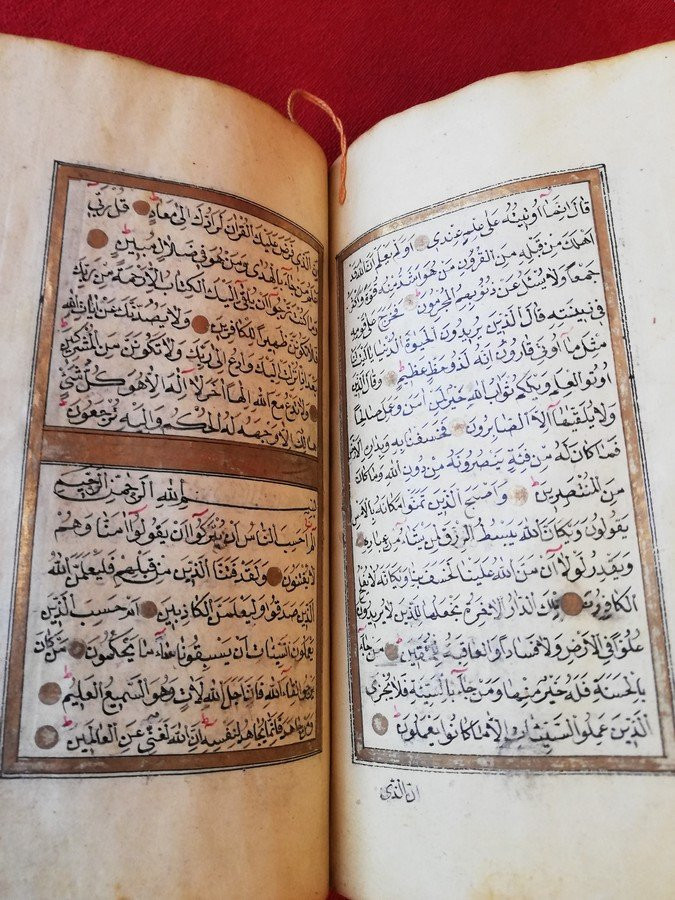 قال إنما أوتيته على علم عندي أو لم يعلم أن الله قد
أهلك من قبله من القرون من هو أشد منه قوة وأكثر
جمعا ولا يسئل عن ذنوبهم المجرمون فخرج على قومه
في زينته قال الذين يريدون الحيوة الدنيا يا ليت لنا
مثل ما أوتي قارون إنه لذو حظ عظيم وقال الذين
أوتوا العلم ويلكم ثواب الله خير لمن آمن وعمل صالحا
ولا يلقيها إلا الصابرون فخسفنا به وبداره الأرض
فما كان له من فئة ينصرونه من دون الله وما كان
من المنتصرين وأصبح الذين تمنوا مكانه بالأمس
يقولون ويكأن الله يبسط الرزق لمن يشاء من عباده
ويقدر لولا أن من الله علينا لخسف بنا ويكأنه لا يفلح
الكافرون تلك الدار الآخرة نجعلها للذين لا يريدون
علوا في الأرض ولا فسادا والعاقبة للمتقين من جاء
بالحسنة فله خير منها ومن جاء بالسيئة فلا يجزى
الذين عملوا السيئات إلا ما كانوا يعملون
إن الذي
إن الذي فرض عليك القرآن لرادك إلى معاد قل ربي
أعلم من جاء بالهدى ومن هو في ضلال مبين
وما كنت ترجوا أن يلقى إليك الكتاب إلا رحمة من ربك
فلا تكونن ظهيرا للكافرين ولا يصدنك عن آيات الله
بعد إذ أنزلت إليك وادع إلى ربك ولا تكونن من المشركين
ولا تدع مع الله إلها آخر لا إله إلا هو كل شيء
هالك إلا وجهه له الحكم وإليه ترجعون
بسم الله الرحمن الرحيم
الم أحسب الناس أن يتركوا أن يقولوا آمنا وهم
لا يفتنون ولقد فتنا الذين من قبلهم فليعلمن الله
الذين صدقوا وليعلمن الكاذبين أم حسب الذين
يعملون السيئات أن يسبقونا ساء ما يحكمون من كان
يرجوا لقاء الله فإن أجل الله لآت وهو السميع العليم
ومن جاهد فإنما يجاهد لنفسه إن الله لغني عن العالمين